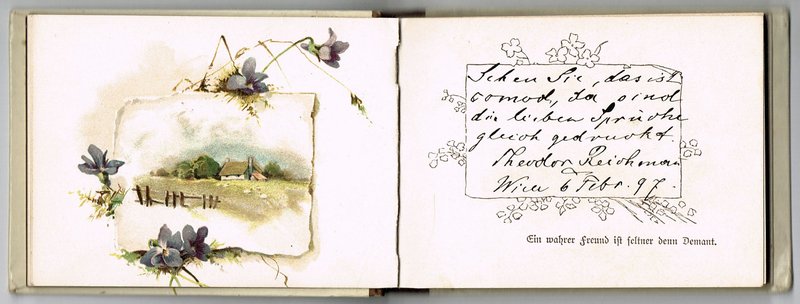 Sehen Sie, das ist
comod, da sind
die lieben Sprüche
gleich gedruckt
Theodor Reichmann
Wien 6 Febr. 97.
Ein wahrer Freund ist seltner denn Demant.